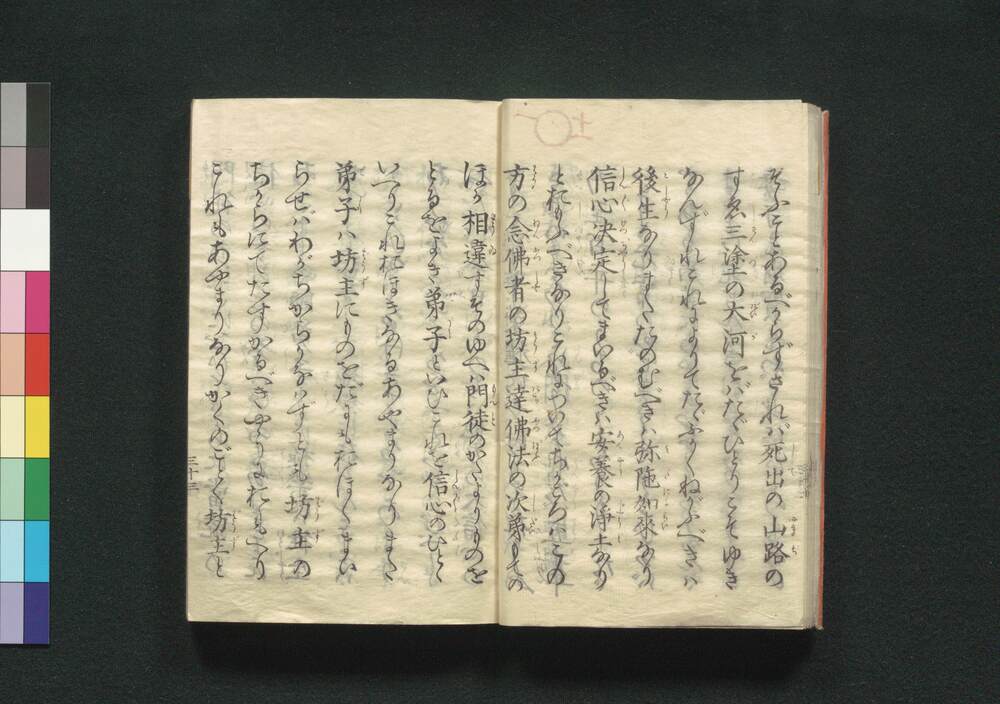 そふことあるべからずされバ死出の山路の
すゑ三塗の大河をバたゞひとりこそゆき
なんずれこれによりてたゞふかくねがふべきハ
後生なりまたたのむべきハ弥陁如来なり
信心決定してまいるべきハ安養の浄土なり
とおもふべきなりこれについてちかごろハこの
方の念佛者の坊主達佛法の次苐もての
ほか相違すそのゆへハ門徒のかたよりものを
とるをよき弟子といひこれを信心のひとと
いへりこれおほきなるあやまりなりまた
弟子ハ坊主にものをだにもおほくまいら
らせバわがちからかなハずとも坊主の
ちからにてたすかるべきやうにおもへり
これもあやまりなりかくのごとく坊主と
三十三